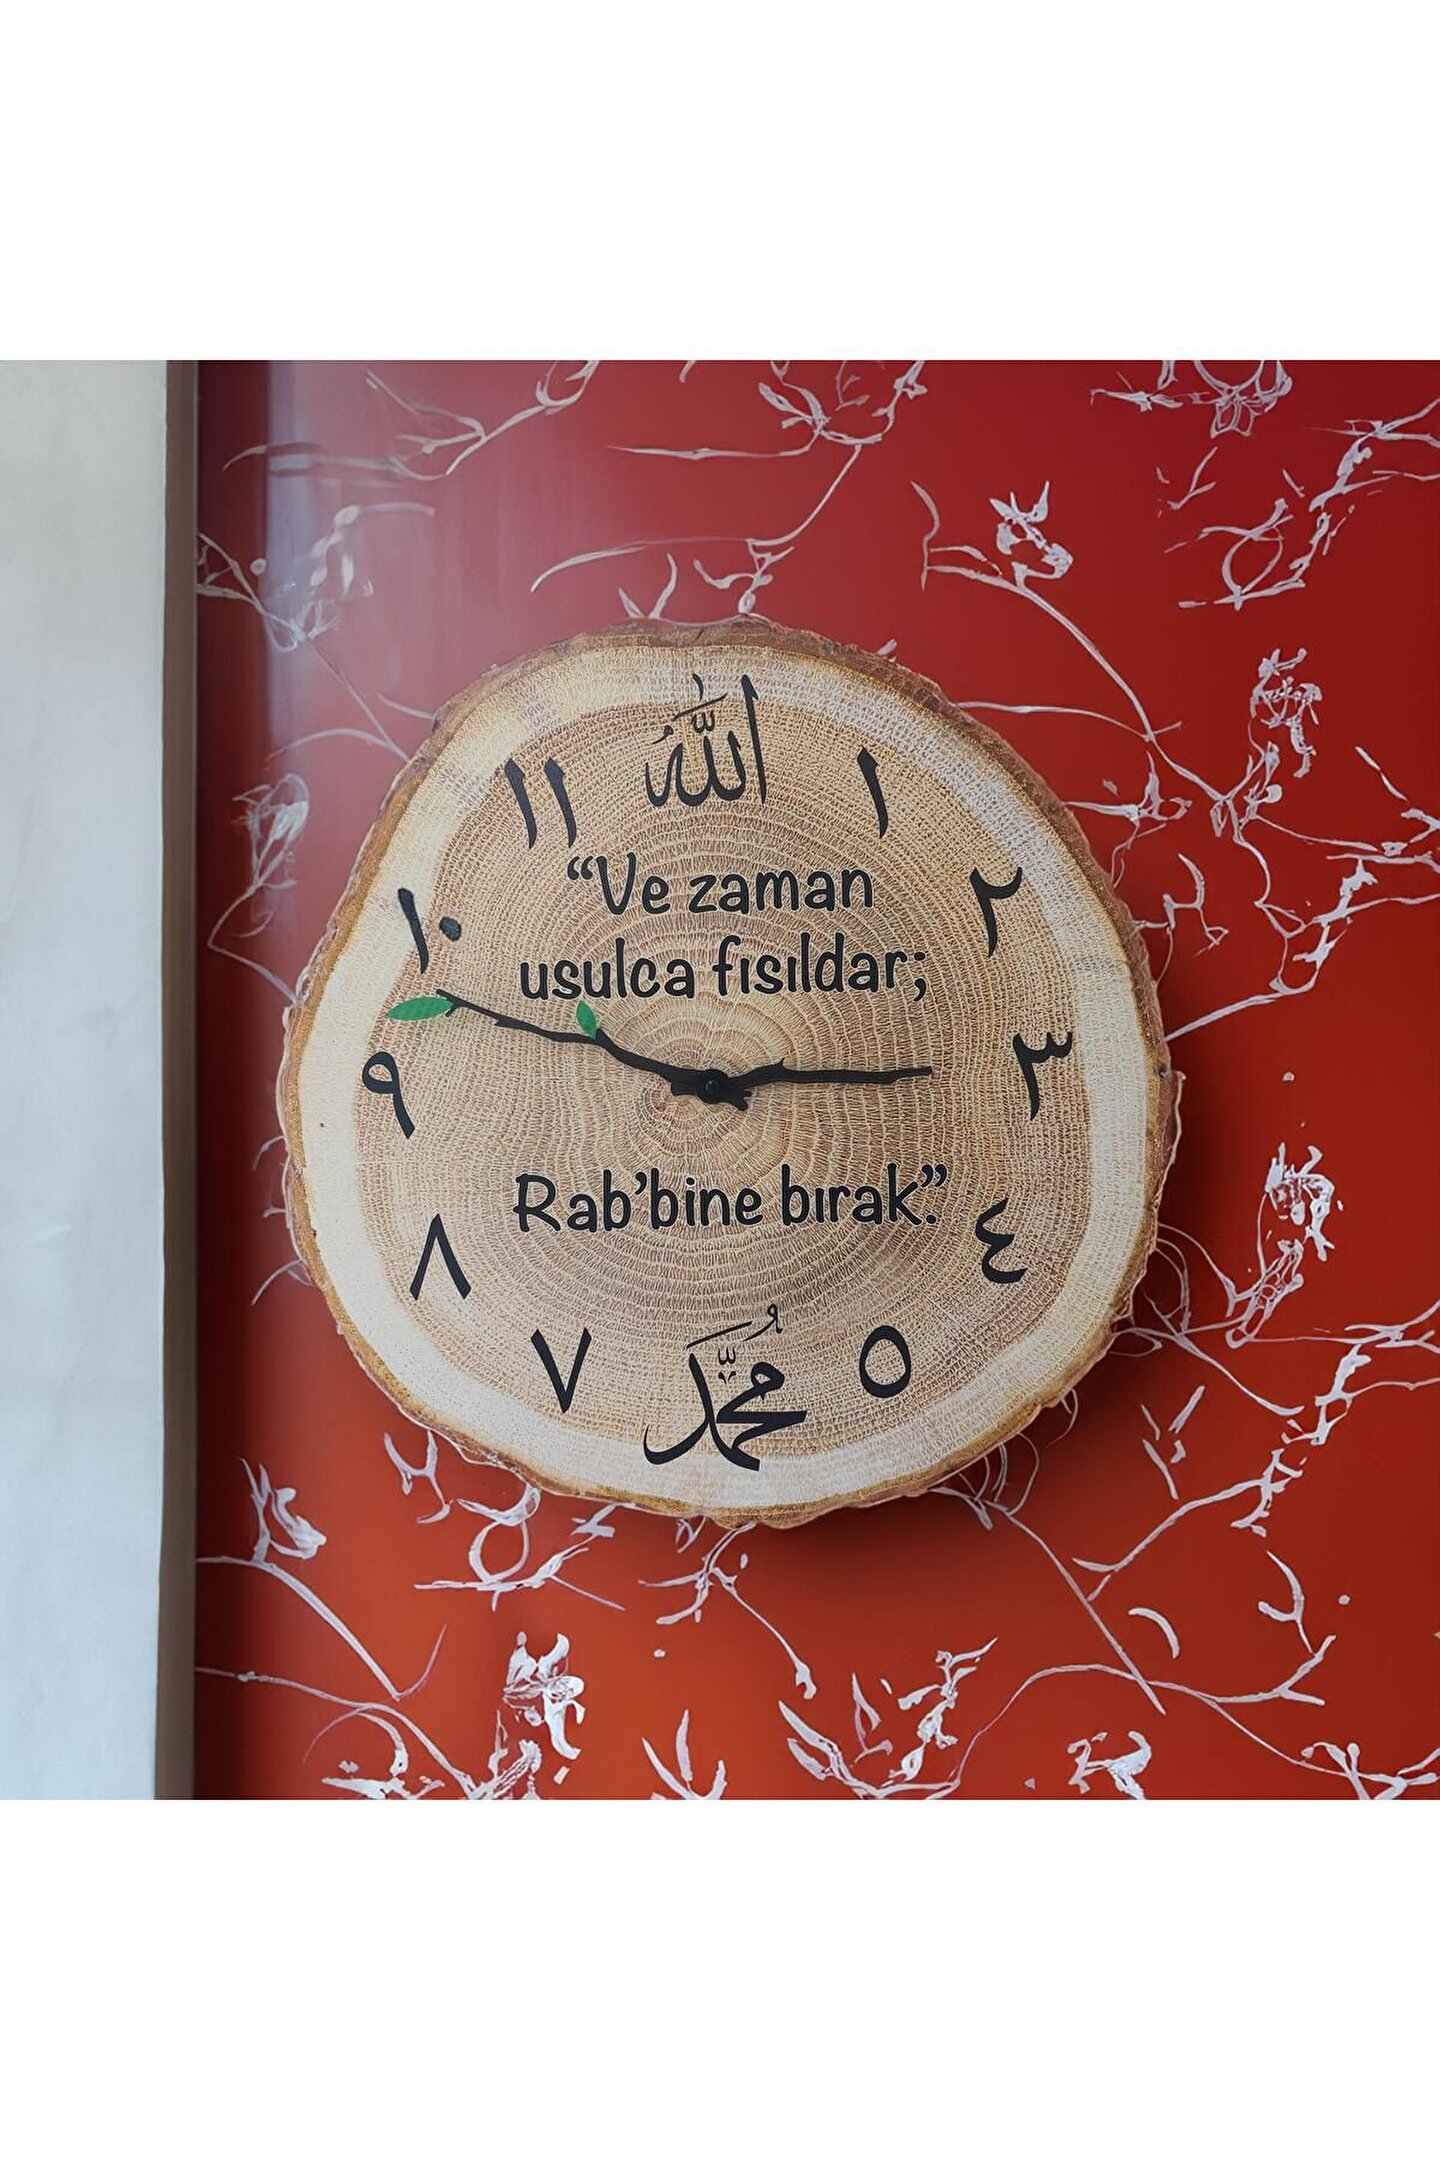 الله
١١ ١
“Ve zaman
١٠ ٢
usulca fısıldar;
٩ ٣
Rab’bine bırak.”
٨ ٤
٧ ٥
مُحَمَّد